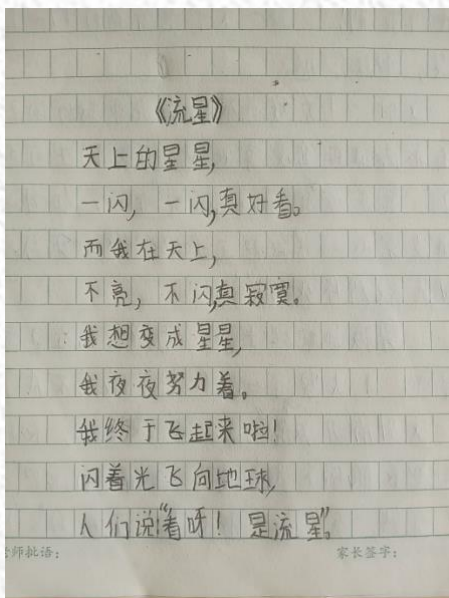 《流星》
天上的星星,
一闪, 一闪,真好看。
而我在天上,
不亮, 不闪,真寂寞。
我想变成星星,
我夜夜努力着。
我终于飞起来啦!
闪着光飞向地球,
人们说:“看呀! 是流星”。
老师批语: 家长签字: